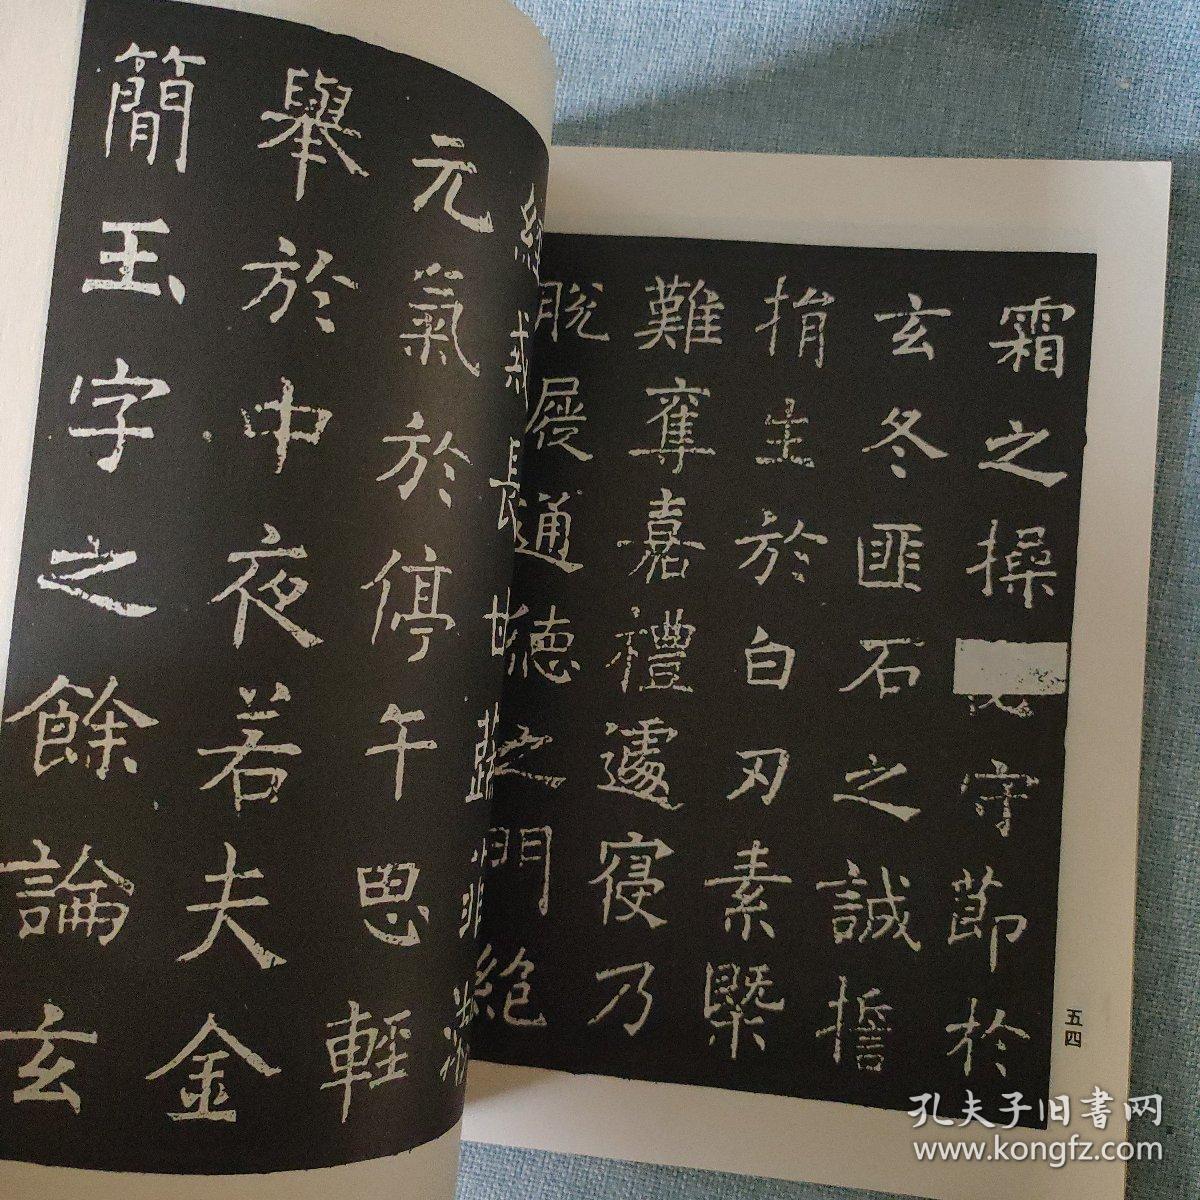 霜之操守節於
玄冬匪石之誠誓
捐生於白刃素槩
難奪嘉禮遽寑乃
脫屣通德之門絶
戒長甘蔬菲
元氣於停午思輕
舉於中夜若夫金
簡玉字之餘論玄
五四
孔夫子旧书网
www.kongfz.com